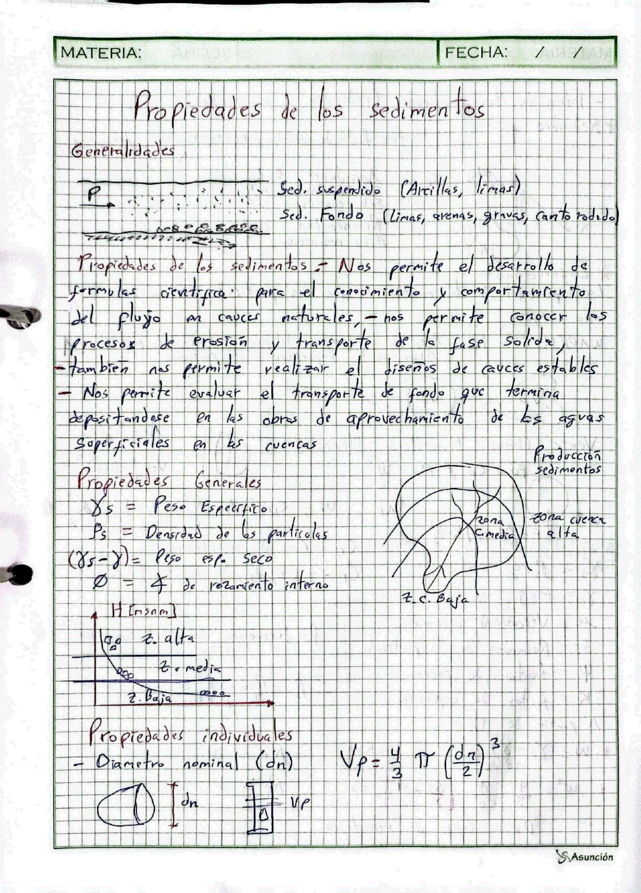 MATERIA:
FECHA: / /
Propiedades de los sedimentos
Generalidades
P
Sed. suspendido (Arcillas, limas)
Sed. Fondo (limas, arenas, gravas, canto rodado)
Propiedades de los sedimentos.- Nos permite el desarrollo de
formulas cientifica para el conocimiento y comportamiento
del flujo en cauces naturales,- nos permite conocer los
procesos de erosión y transporte de la fase solida,
- también nos permite realizar el diseños de cauces estables
- Nos permite evaluar el transporte de fondo que termina
depositandose en las obras de aprovechamiento de las aguas
superficiales en las cuencas
Producción
sedimentos
Propiedades Generales
γs = Peso Especifico
ρs = Densidad de las particulas
(γs-γ) = Peso esp. seco
Ø = ∡ de rozamiento interno
zona
C. media
zona cuenca
alta
Z.C. Baja
H [msnm]
Z. alta
Z. media
Z. Baja
Propiedades individuales
- Diametro nominal (dn)
Vp = 4/3 π (dn/2)³
dn
Vp
Asunción